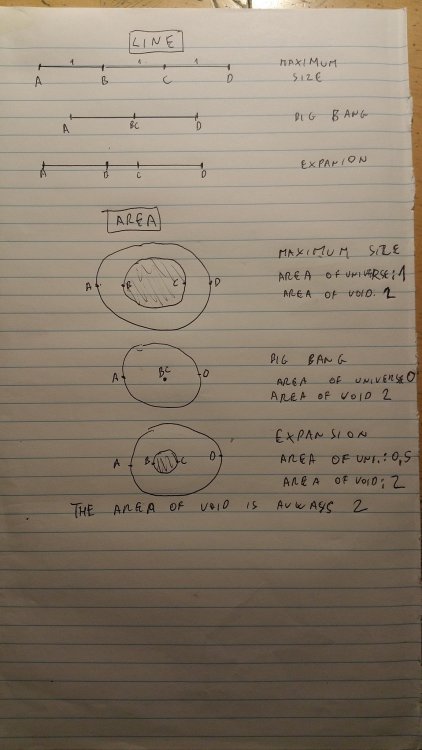 LINE
1 1 1
A B C D
MAXIMUM
SIZE
A BC D
BIG BANG
A B C D
EXPANION
AREA
A B C D
MAXIMUM SIZE
AREA OF UNIVERSE: 1
AREA OF VOID: 2
A BC D
BIG BANG
AREA OF UNIVERSE 0
AREA OF VOID 2
A B C D
EXPANSION
AREA OF UNI.: 0,5
AREA OF VOID: 2
THE AREA OF VOID IS AVWAYS 2